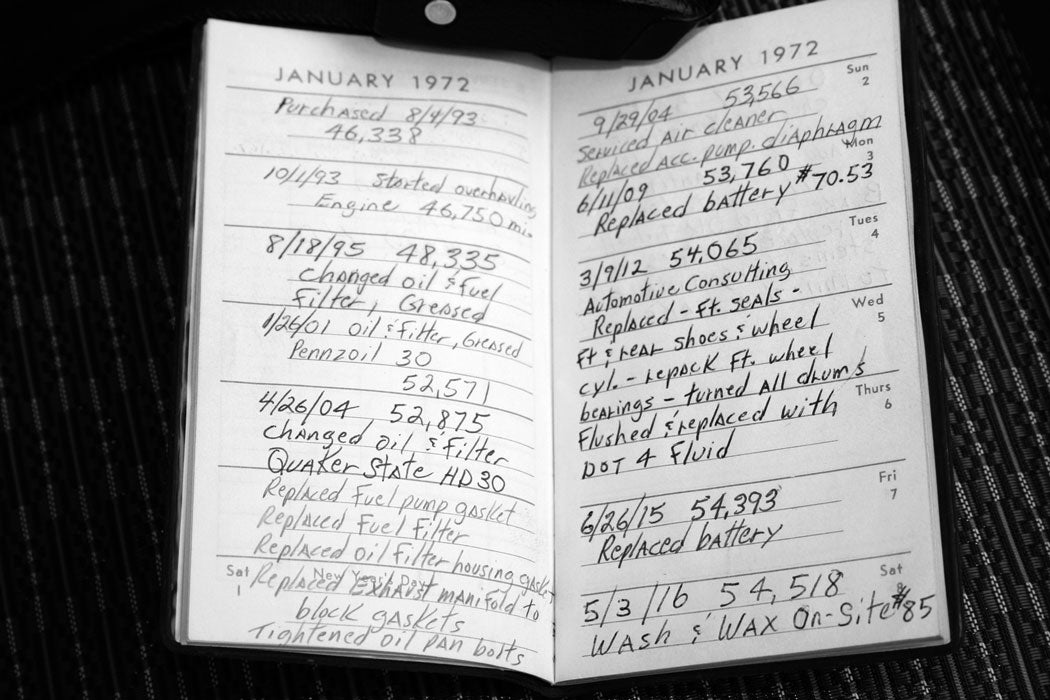 JANUARY 1972
Purchased 8/4/93
46,338
10/1/93 Started overhauling
Engine 46,750 mi.
8/18/95 48,335
changed oil & fuel
filter, Greased
1/26/01 oil & filter, Greased
Pennzoil 30
52,571
4/26/04 52,875
changed oil & filter
Quaker State HD30
Replaced fuel pump gasket
Replaced Fuel Filter
Replaced oil filter housing gasket
Sat
1
New Year's Day
Replaced Exhaust manifold to
block gaskets
Tightened oil pan bolts
JANUARY 1972
Sun
2
9/29/04 53,566
Serviced Air cleaner
Replaced Acc. pump. diaphragm
Mon
3
6/11/09 53,760
Replaced battery $70.53
Tues
4
3/9/12 54,065
Automotive Consulting
Replaced - ft. seals -
Wed
5
ft & rear shoes & wheel
cyl. - repack ft. wheel
bearings - turned all drums
Thurs
6
flushed & replaced with
DOT 4 Fluid
Fri
7
6/26/15 54,393
Replaced battery
Sat
8
5/3/16 54,518
Wash & Wax On-Site $85